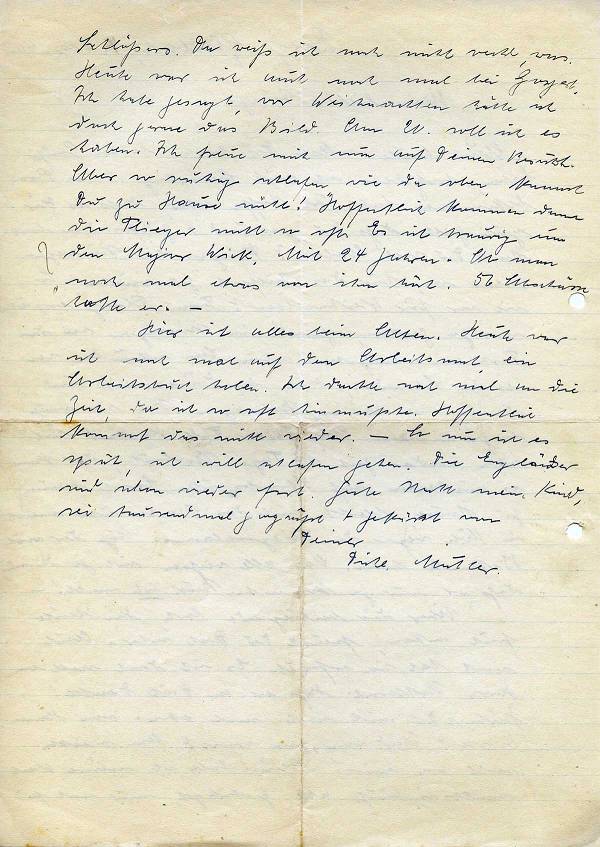 Schlüssers. Da weiß ich noch nicht recht, was.
Heute war ich auch noch mal bei
Ich habe gesagt, vor Weihnachten hätte ich
doch gerne das Bild. Am 21. soll ich es
haben. Ich freue mich nun auf Deinen Besuch.
Aber so ruhig schlafen, wie da oben, kannst
Du zu Hause nicht! Hoffentlich kommen dann
die Flieger nicht so oft. Es ist traurig um
den Major Wick. Mit 24 Jahren. Ob man
noch mal etwas von ihm hört. 56 Abschüsse
hatte er. —
Hier ist alles beim Alten. Heute war
ich noch mal auf dem Arbeitsamt, ein
Arbeitsbuch holen. Ich dachte noch mal an die
Zeit, da ich so oft hinmußte. Hoffentlich
kommt das nicht wieder. — So nun ist es
spät, ich will schlafen gehen. Die Engländer
sind eben wieder fort. Gute Nacht mein Kind,
sei tausendmal gegrüßt + geküsst von
Deiner
Mutter.